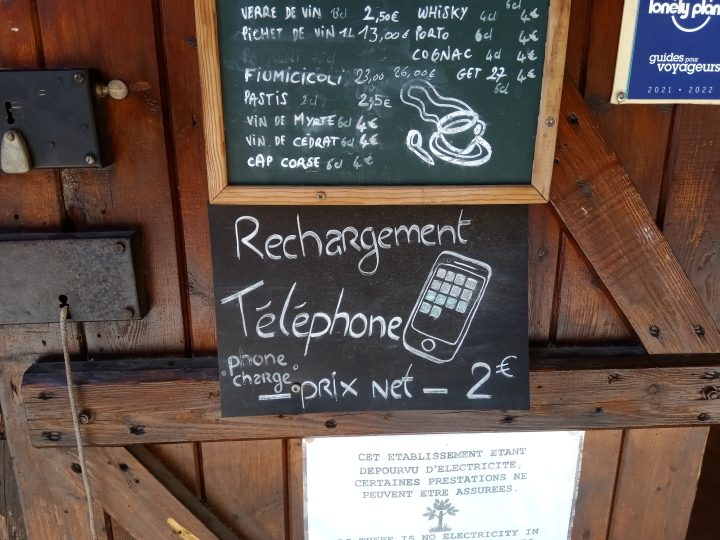 VERRE DE VIN 2,50€ WHISKY 4cl 4€
PICHET DE VIN 1L 13,00€ PORTO 6cl 4€
COGNAC 4cl 4€
FIUMICICOLI 23,00 26,00€ GET 27 4€
6cl
PASTIS 2cl 2,5€
VIN DE MYRTE 6cl 4€
VIN DE CÉDRAT 6cl 4€
CAP CORSE 6cl 4€
lonely plan
guides pour
voyageurs
2021 • 2022
Rechargement
Téléphone
phone
charge
- prix net - 2€
CET ETABLISSEMENT ETANT
DEPOURVU D'ELECTRICITE,
CERTAINES PRESTATIONS NE
PEUVENT ETRE ASSUREES.
THERE IS NO ELECTRICITY IN